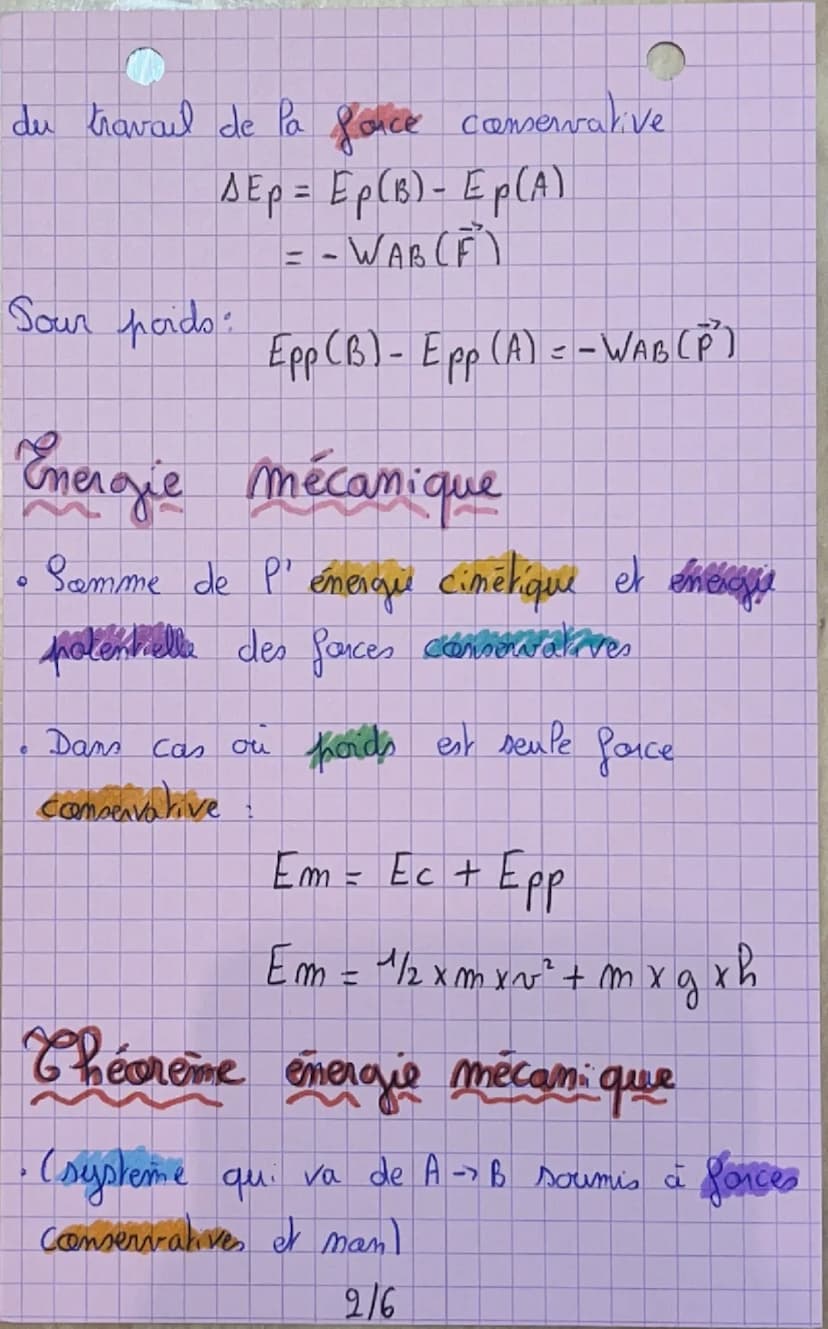 du travail de la force conservative
ΔEp = Ep(B) - Ep(A)
= - WAB(F⃗)
Pour poids :
Epp(B) - Epp(A) = - WAB(P⃗)
Énergie mécanique
• Somme de l' énergie cinétique et énergie
potentielle des forces conservatives
• Dans cas où poids est seule force
conservative :
Em = Ec + Epp
Em = 1/2 x m x v² + m x g x h
Théorème énergie mécanique
• (système qui va de A → B soumis à forces
conservatives et non)
2/6